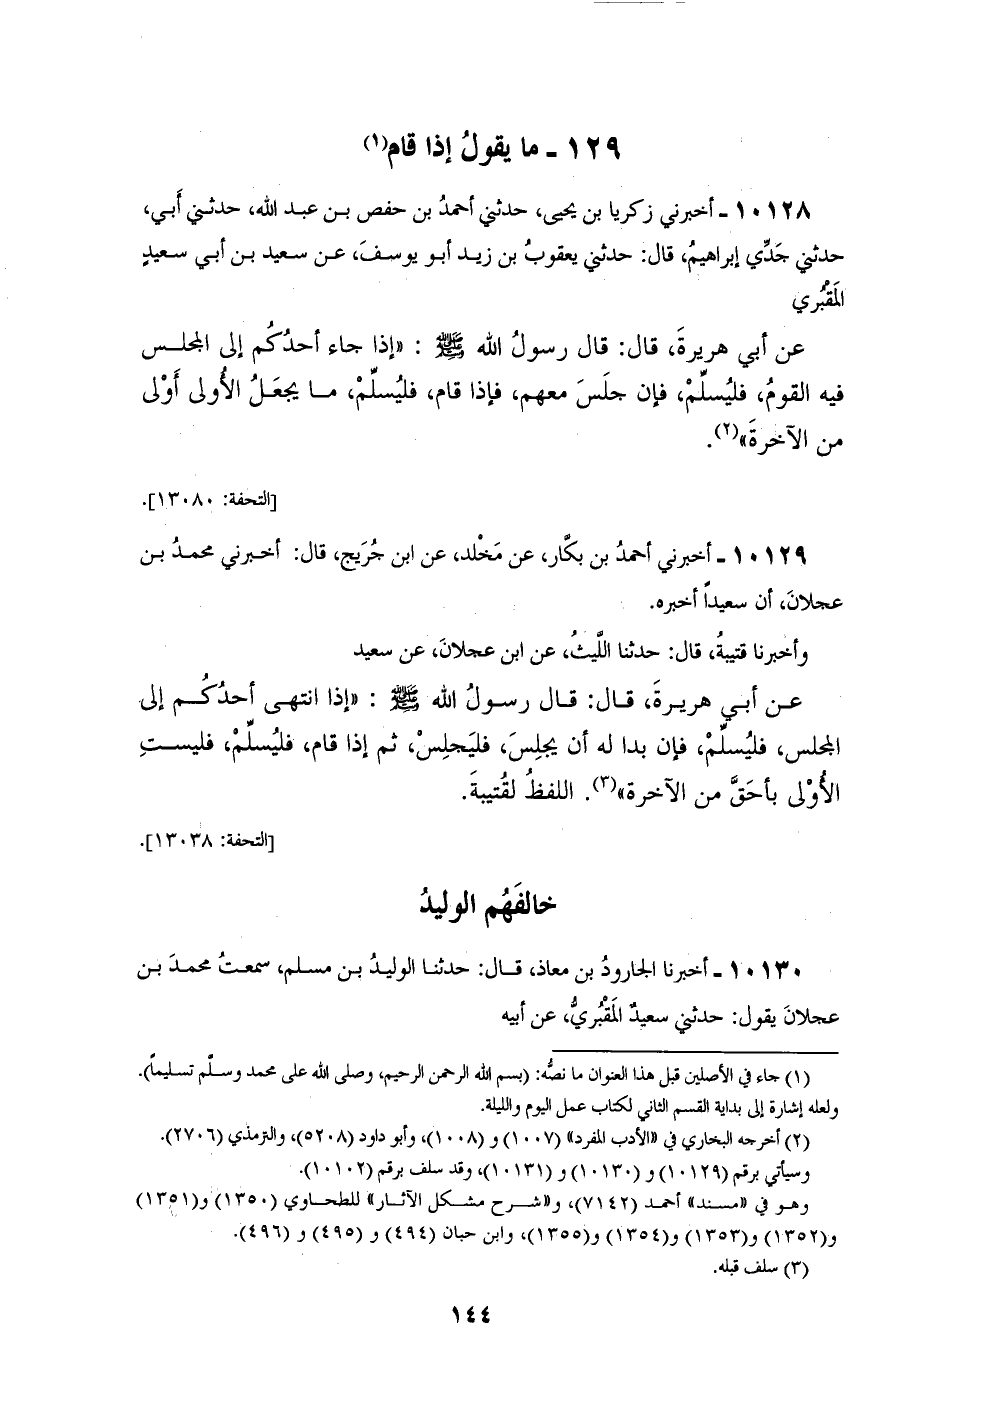 ١٢٩ ـ ما يقولُ إذا قام(١)
١٠١٢٨ ـ أخبرني زكريا بن يحيى، حدثني أحمدُ بن حفص بن عبد الله، حدثني أَبي،
حدثني جَدِّي إبراهيمُ، قال: حدثني يعقوبُ بن زيد أبو يوسفَ، عن سعيد بن أبي سعيدٍ
المَقْبُري
عن أبي هريرةَ، قال: قال رسولُ الله ﷺ : «إذا جاء أحدُكُم إلى المجلس
فيه القومُ، فليُسلِّمْ، فإن جلَسَ معهم، فإذا قام، فليُسلِّمْ، ما يجعَلُ الأُولى أَوْلى
من الآخرةَ»(٢).
[التحفة: ١٣٠٨٠].
١٠١٢٩ ـ أخبرني أحمدُ بن بكَّار، عن مَخْلد، عن ابن جُرَيج، قال: أخبرني محمدُ بن
عجلانَ، أن سعيداً أخبره.
وأخبرنا قتيبةُ، قال: حدثنا اللَّيثُ، عن ابن عجلانَ، عن سعيد
عن أبي هريرةَ، قال: قال رسولُ الله ﷺ : «إذا انتهى أحدُكُم إلى
المجلس، فليُسلِّمْ، فإن بدا له أن يجلِسَ، فليَجلِسْ، ثم إذا قام، فليُسلِّمْ، فليستِ
الأُوْلى بأحَقَّ من الآخرة»(٣). اللفظُ لقُتيبةَ.
[التحفة: ١٣٠٣٨].
خالفَهُم الوليدُ
١٠١٣٠ ـ أخبرنا الجارودُ بن معاذ، قال: حدثنا الوليدُ بن مسلم، سمعتُ محمدَ بن
عجلانَ يقول: حدثني سعيدٌ المَقْبُريُّ، عن أبيه
(١) جاء في الأصلين قبل هذا العنوان ما نصُّه: (بسم الله الرحمن الرحيم، وصلى الله على محمد وسلَّم تسليماً).
ولعله إشارة إلى بداية القسم الثاني لكتاب عمل اليوم والليلة.
(٢) أخرجه البخاري في «الأدب المفرد» (١٠٠٧) و (١٠٠٨)، وأبو داود (٥٢٠٨)، والترمذي (٢٧٠٦).
وسيأتي برقم (١٠١٢٩) و (١٠١٣٠) و (١٠١٣١)، وقد سلف برقم (١٠١٠٢).
وهو في «مسند» أحمد (٧١٤٢)، و«شرح مشكل الآثار» للطحاوي (١٣٥٠) و(١٣٥١)
و(١٣٥٢) و(١٣٥٣) و(١٣٥٤) و(١٣٥٥)، وابن حبان (٤٩٤) و (٤٩٥) و (٤٩٦).
(٣) سلف قبله.
١٤٤